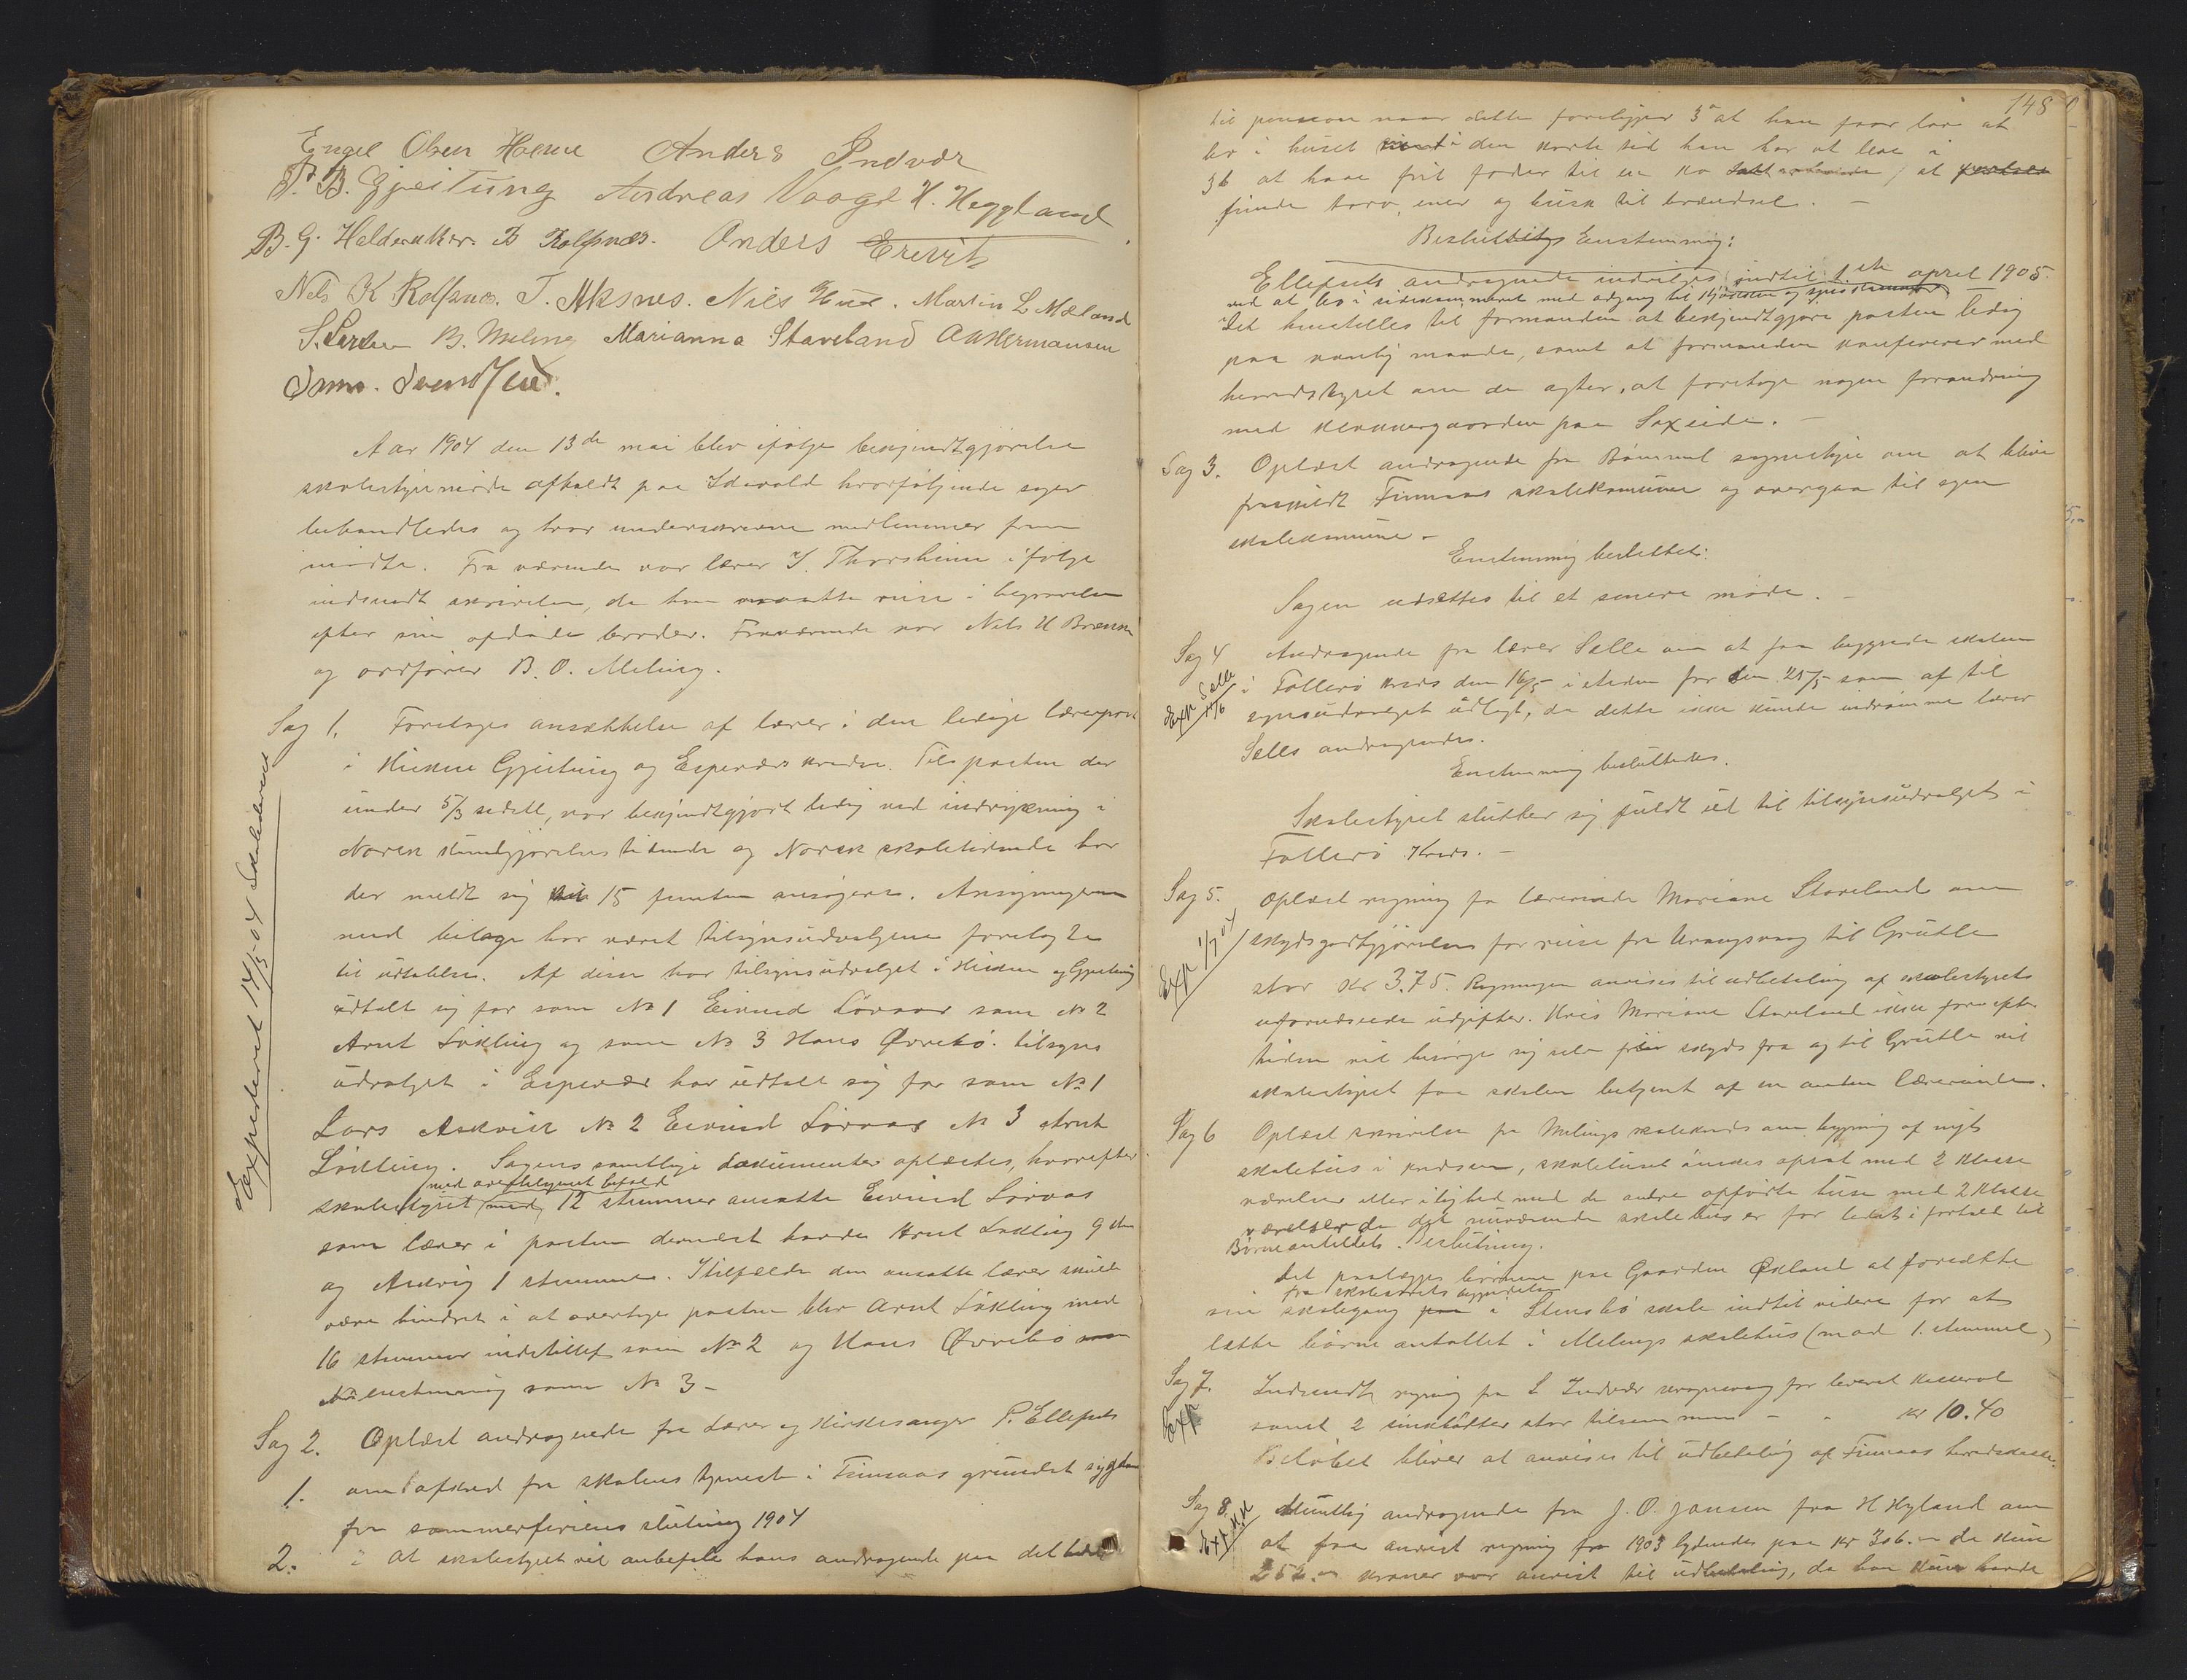 Engel Olsen Holme Anders Indvær
P. B. Gjeitung Andreas Vaage H. Heggland
B. G. Heldeaker. B Rolfsnæs. Anders
Nils K Rolfsnes. T. Aksnes. Nils Hus. Martin L Mæland
B. Meling Marianna Staveland O Hermansen
Svendsen.
Aar 1904 den 13de mai blev ifølge bekjendtgjörelse
skolestyremöde afholdt paa Idavold hvorfölgende sager
behandledes og hvor underskrevne medlemmer frem
mödte. Fraværende var lærer T. Thorsheim ifölge
indsendt skrivelse, da han maatte reise i begravelse
efter sin afdöde broder. Fraværende var Nils H
og ordförer B. O. Meling.
Expederet 14/5-04
Sag 1. Foretoges ansættelse af lærer i den ledige lærerpost
i Hiskens Gjeitung og Espeværs kredse. Til posten der
under 5/3 sidstl, var bekjendtgjort ledig ved indrykning i
Norsk Kundgjørelses tidende og Norsk skoletidende har
der meldt sig 15 femten ansögere. Ansögningerne
med bilage har været tilsynsudvalgene forelagte
til udtalelse. Af disse har tilsynsudvalget i Hisken og Gjeitung
udtalt sig for som No 1 Eivind Lörvaas som No 2
Arnt Lökling og som No 3 Hans Övrebö. tilsyns
udvalget i Espevær har udtalt sig for som No 1
Lars Askvik No 2 Eivind Lörvaas No 3 Arnt
Lökling. Sagens samtlige dokumenter oplæstes, hvorefter
skolestyret med 12 stemmer ansatte Eivind Lörvaas
som lærer i posten dernæst havde Arnt Lökling 9
og Askvig 1 stemme. I tilfælde den ansatte lærer skulde
være hindret i at overtage posten blev Arnt Lökling med
16 stemmer indstillet som No 2 og Hans Övrebö
enstemmig som No 3 –
Sag 2. Oplæst andragende fra Lærer og Kirkesanger P. Ellefsens
1. om afsked fra skolens tjeneste i Finnaas grundet sygdom
fra sommerferiens slutning 1904
2. at skolestyret vil anbefale hans andragende paa det
148
til pension naar dette foreligger 3a at han faar lov at
bo i huset i den korte tid han har at leve i
3b at have frit foder til en ko at
finde torv, ener og busk til brændsel. –
Beslutning Enstemmig:
Ellefsens andragende indvilges indtil 1ste april 1905.
ved at bo i sideskammeret med adgang til kjökken og
Det henstilles til formanden at bekjendtgjöre posten ledig
paa vanlig maade, samt at formanden konfererer med
herredstyret om de agter, at foretage nogen forandring
med klokkergaarden paa Saxeide. –
Sag 3. Oplæst andragende fra Bömmel sognestyre om at blive
fraskildt Finnaas skolekomune og overgaa til egen
skolekomune –
Enstemmig besluttet:
Sagen udsættes til et senere möde. –
Sag 4 Andragende fra lærer Selle om at faa begynde skolen
Exp Selle
i Follerö kreds den 16/5 isteden for den 25/5 som af til
synsudvalget udlagt, da dette ikke kunde indrömme lærer
Selles andragende.
Enstemmig besluttedes.
Skolestyret slutter sig fuldt ud til tilsynsudvalget i
Follerö Kreds. –
Sag 5. Oplæst regning fra lærerinde Mariane Staveland om
Exp 1/7 04
skydsgodtgjörelse for reise fra Urangsvaag til Grutle
stor kr 3.75. Regningen anvises til udbetaling af skolestyrets
uforudseede udgifter. Hvis Mariane Staveland ikke for efter
tiden vil besörge sig selv skyds fra og til Grutle vil
skolestyret faa skolen betjent af en anden lærerinde.
Sag 6 Oplæst skrivelse fra Melings skolekreds om bygning af nyt
skolehus i kredsen, skolehuset önskes opsat med 2 klasse
værelser eller i lighed med de andre opförte huse med 2 klasse
værelser da det nuværende skolehus er for lidet i forhold til
Börneantallet. Beslutning.
Det paalægges börnene paa Gaarden Økland at forsætte
fra skoleaarets begyndelse
sin skolegang i Stensbö skole indtil videre for at
lette börne antallet i Melings skolehus (mod 1. stemme)
Sag 7. Indsendt regning fra L Indvær for leveret
Exp
samt 2 stor tilsammen – kr 10.40
Belöbet bliver at anvises til udbetaling af Finnaas herredskasse.
Sag 8. Mundtlig andragende fra J. O. Jansen fra H Hyland om
Exp
at faa anvist regning fra 1903 lydende paa kr 306. – da kun
252. – kroner var anvist til udbetaling, da han kun havde